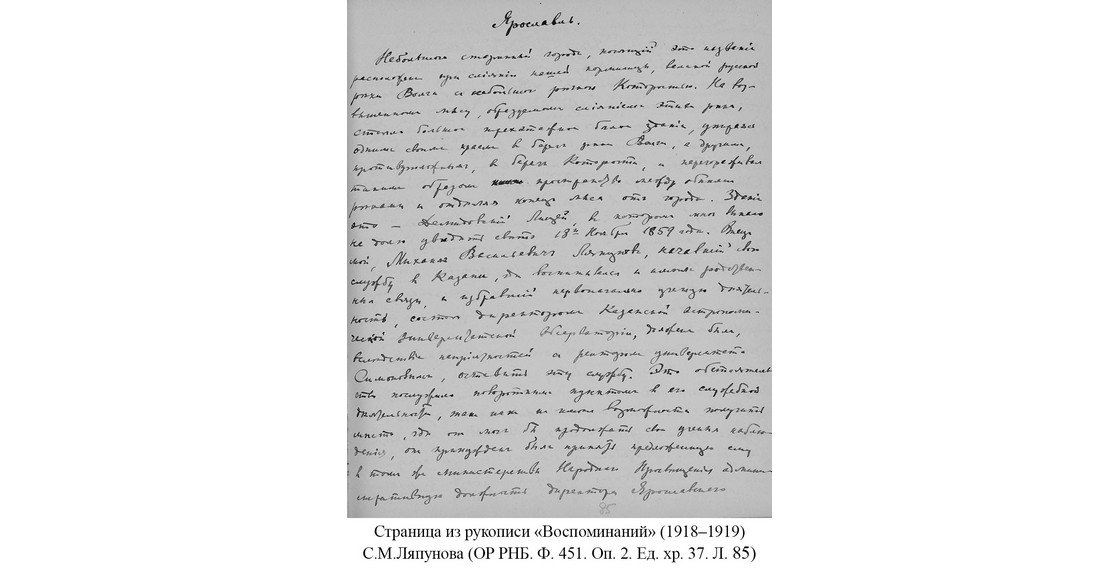 Ярославль.
Небольшой старинный городъ, носящій это названіе
расположенъ при сліяніи нашей кормилицы, великой русской
рѣки Волги съ небольшой рѣчкою Которостью. На воз-
вышенномъ мысу, образуемомъ сліяніемъ этихъ рѣкъ,
стояло большое трехэтажное бѣлое зданіе,
однимъ своимъ краемъ въ берегъ рѣки Волги, а другимъ,
противуположнымъ, въ берегъ Которости, и перегораживая
такимъ образомъ пространство между обѣими
рѣками и отдѣляя конецъ мыса отъ города. Зданіе
это – Демидовскій Лицей, въ которомъ мнѣ выпало
на долю увидѣть свѣтъ 18го Ноября 1859 года. Отецъ
мой, Михаилъ Васильевичъ Ляпуновъ, начавшій свою
службу въ Казани, гдѣ воспитывался и имѣлъ родствен-
ныя связи, и избравшій первоначально ученую дѣятель-
ность, состоя директоромъ Казанской астрономи-
ческой Университетской Обсерваторіи, долженъ былъ,
вслѣдствіе непріятностей съ ректоромъ университета
Симоновымъ, оставить эту службу. Это обстоятель
ство послужило поворотнымъ пунктомъ въ его служебной
дѣятельности, такъ какъ не имѣя возможности получить
мѣсто, гдѣ онъ могъ бы продолжать свои ученыя наблю-
денія, онъ принужденъ былъ принять предложенную ему
въ томъ же Министерствѣ Народнаго Просвѣщенія админи-
стративную должность директора Ярославскаго
85
Страница из рукописи «Воспоминаний» (1918–1919)
С.М.Ляпунова (ОР РНБ. Ф. 451. Оп. 2. Ед. хр. 37. Л. 85)